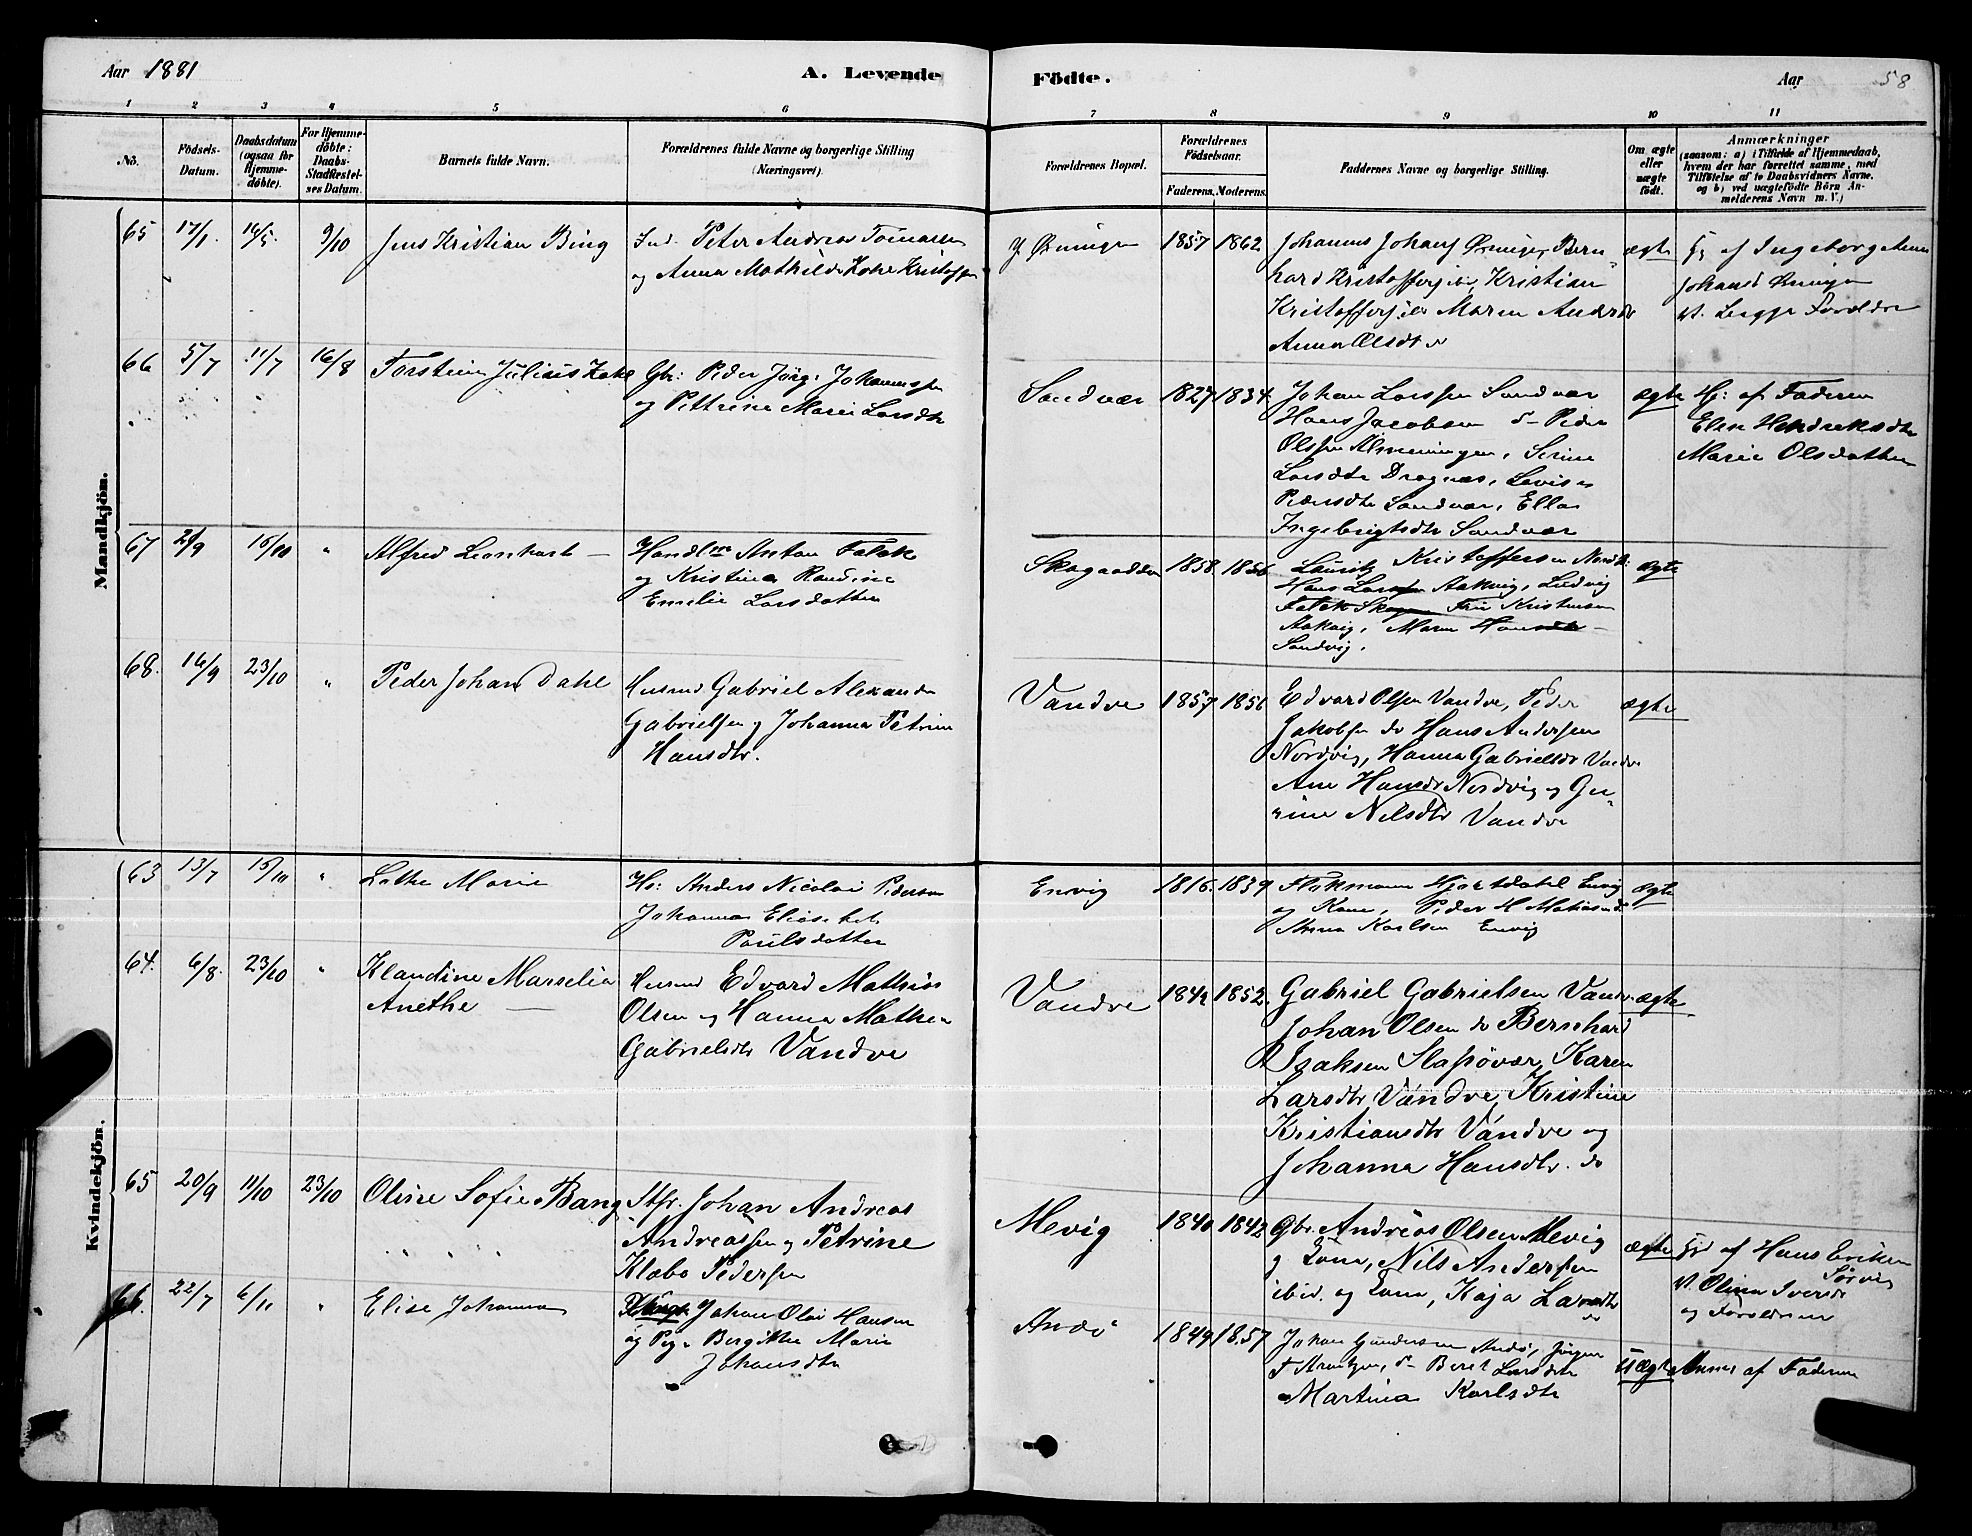 Aar 1881
A. Levende
Födte.
Aar
58
1 2 3 4 5 6 7 8 9 10 11
No.
Födsels-
Datum.
Daabsdatum
(ogsaa for
Hjemme-
döbte).
For Hjemme-
döbte:
Daabs-
Stadfæstel-
ses Datum.
Barnets fulde Navn.
Forældrenes fulde Navne og borgerlige Stilling
(Næringsvei).
Forældrenes Bopæl.
Forældrenes
Födselsaar.
Faderens. Moderens.
Faddernes Navne og borgerlige Stilling.
Om ægte
eller
uægte
födt.
Anmærkninger
(saasom: a) i Tilfælde af Hjemmedaab,
hvem der har forrettet samme, med
Tilföielse af to Daabsvidners Navne.
og b) ved uægtefödte Börn An-
melderens Navn m. V.)
Mandkjön.
65 17/1. 14/5 9/10 Jens Kristian Bing
Ind. Peter Andreas Tomassen
og Anna Mathilde Kristoffs
1857 1862
Johannes Johans
hard Kristoffersen, Kristian
Kristoffersen Maren Andrsdtr
Anna Olsdtr
ægte
af Ingeborg Anna
Johansd
v. Forældre
66 5/7 11/7 16/8 Torstein Julius
Gbr: Peder Jörg. Johannessen
og Pettrine Marie Larsdtr
Sandvær 1827 1834
Johan Larssen Sandvær
Hans Jacobsen Peder
Olssen Almenningen, Serine
Larsdtr Dragnæs, Lovise
Pedersdtr Sandvær, Ellen
Ingebrigtsdtr Sandvær
ægte
Hj: af Faderen
Elen Hendreksdtr
Marie Olsdatter
67 21/9 16/10 " Alfred Leonhart —
Handlm Anton Falck
og Kristine Randine
Emelie Larsdatter
1858. 1856
Lauritz Kristoffersen
Hans Larssen Aakvig, Ludvig
Falck Fru Kristensen
Aakvig, Maren Hansdtr
Sandvig.
ægte
68. 16/9 23/10 " Peder Johan Dahl
Husmd Gabriel Alexander
Gabrielsen og Johanna Petrine
Hansdtr.
Vandve 1857 1856
Edvard Olsen Vandve, Peder
Jakobsen do Hans Andersen
Nordvig, Hanna Gabrielsdtr Vandve
Ane Hansdtr Nordvig og Gu-
rine Nilsdtr Vandve
ægte
Kvindekjön.
63 13/7 15/10 " Lethe Marie
Hs: Anders Nicolai Pedersen
Johanna Elisabet
Paulsdatter
Envig 1816. 1839
Hjortdahl Envig
og Kone, Peder M Mathisen
Anna Karlsen Envig
ægte
64. 6/8. 23/10 " Klaudine Marselie
Anethe —
Husmd Edvard Mathias
Olsen og Hanna Mathea
Gabrielsdtr Vandve
Vandve 1849 1852.
Gabriel Gabrielsen Vandve
Johan Olsen do Bernhard
Isaksen Slapövær, Karen
Larsdtr Vandve, Kristine
Kristiansdtr Vandve og
Johanna Hansdtr. do
ægte
65 20/9 11/10 23/10 Oline Sofie Bang
Stfr. Johan Andreas
Andreassen og Petrine
Klæbo Pedersen
Mevig 1840 1842
Gbr. Andreas Olsen Mevig
og Kone, Nils Andersen
ibid. og Kone, Kaja Larsdtr
do
ægte
af Hans Eriksen
Sörvig
v. Olina Iversdtr
og Forældrene
66. 22/7 6/11 " Elise Johanna
Johan Olai Hansen
og Pige Bergitte Marie
Johansdtr
Andö 1849 1857
Johan Gundersen Andö, Jörgen
Arentzen, do Beret Larsdtr
Martina Karlsdtr
uægte
Anmeldt af Faderen